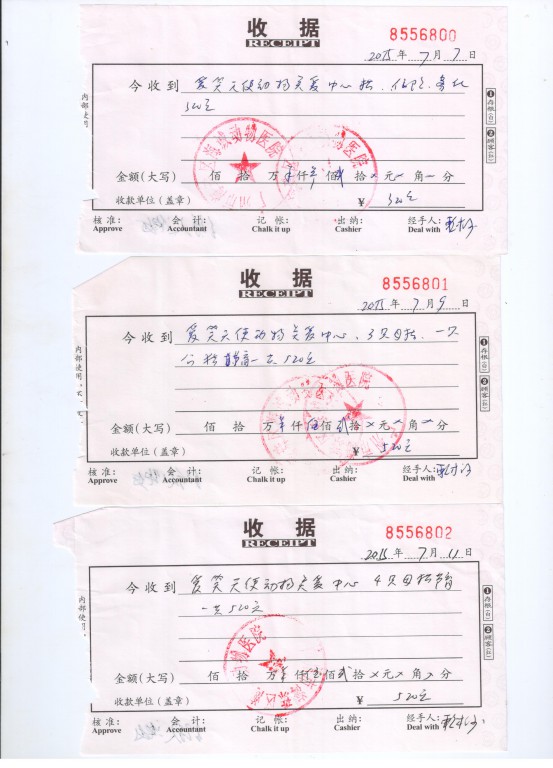 收 据
RECEIPT
8556800
2015 年 7 月 7 日
今收到 爱笑天使动物关爱中心
520元
内部使用
①存根(白)
②顾客(红)
动物医院
金额(大写) 佰 拾 万 仟 佰 贰 拾 元 角 分
收款单位(盖章) ¥ 520元
核准: 会计: 记帐: 出纳: 经手人:
Approve Accountant Chalk it up Cashier Deal with
收 据
RECEIPT
8556801
2015 年 7 月 9 日
今收到 爱笑天使动物关爱中心、3只母猫、一只
公猫 一共520元
内部使用
①存根(白)
②顾客(红)
动物医院
金额(大写) 佰 拾 万 仟 伍 佰 贰 拾 元 角 分
收款单位(盖章) ¥ 520元
核准: 会计: 记帐: 出纳: 经手人:
Approve Accountant Chalk it up Cashier Deal with
收 据
RECEIPT
8556802
2015 年 7 月 11 日
今收到 爱笑天使动物关爱中心 4只母猫
一共520元
内部使用
①存根(白)
②顾客(红)
动物医院
金额(大写) 佰 拾 万 仟 伍 佰 贰 拾 元 角 分
收款单位(盖章) ¥ 520元
核准: 会计: 记帐: 出纳: 经手人:
Approve Accountant Chalk it up Cashier Deal with